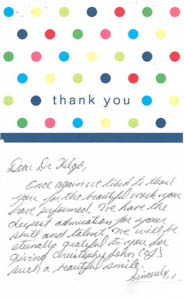 thank you
Dear Dr.
Once again we
you for the beautiful work you
have performed. We have the
deepest admiration for your
skill and talent. We will be
eternally grateful to you for
giving Christopher John
such a beautiful smile.
Sincerely,